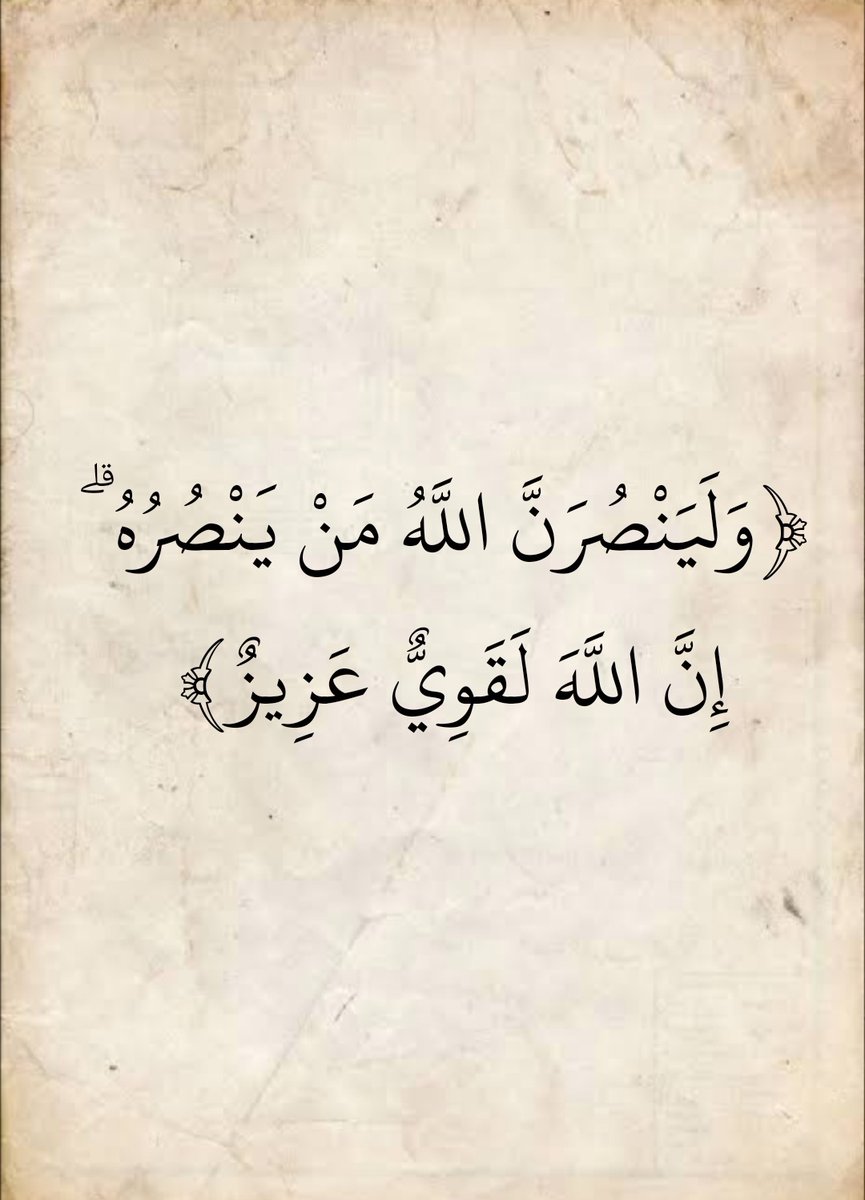 ﴿وَلَيَنْصُرَنَّ اللَّهُ مَنْ يَنْصُرُهُ ۗ
إِنَّ اللَّهَ لَقَوِيٌّ عَزِيزٌ﴾